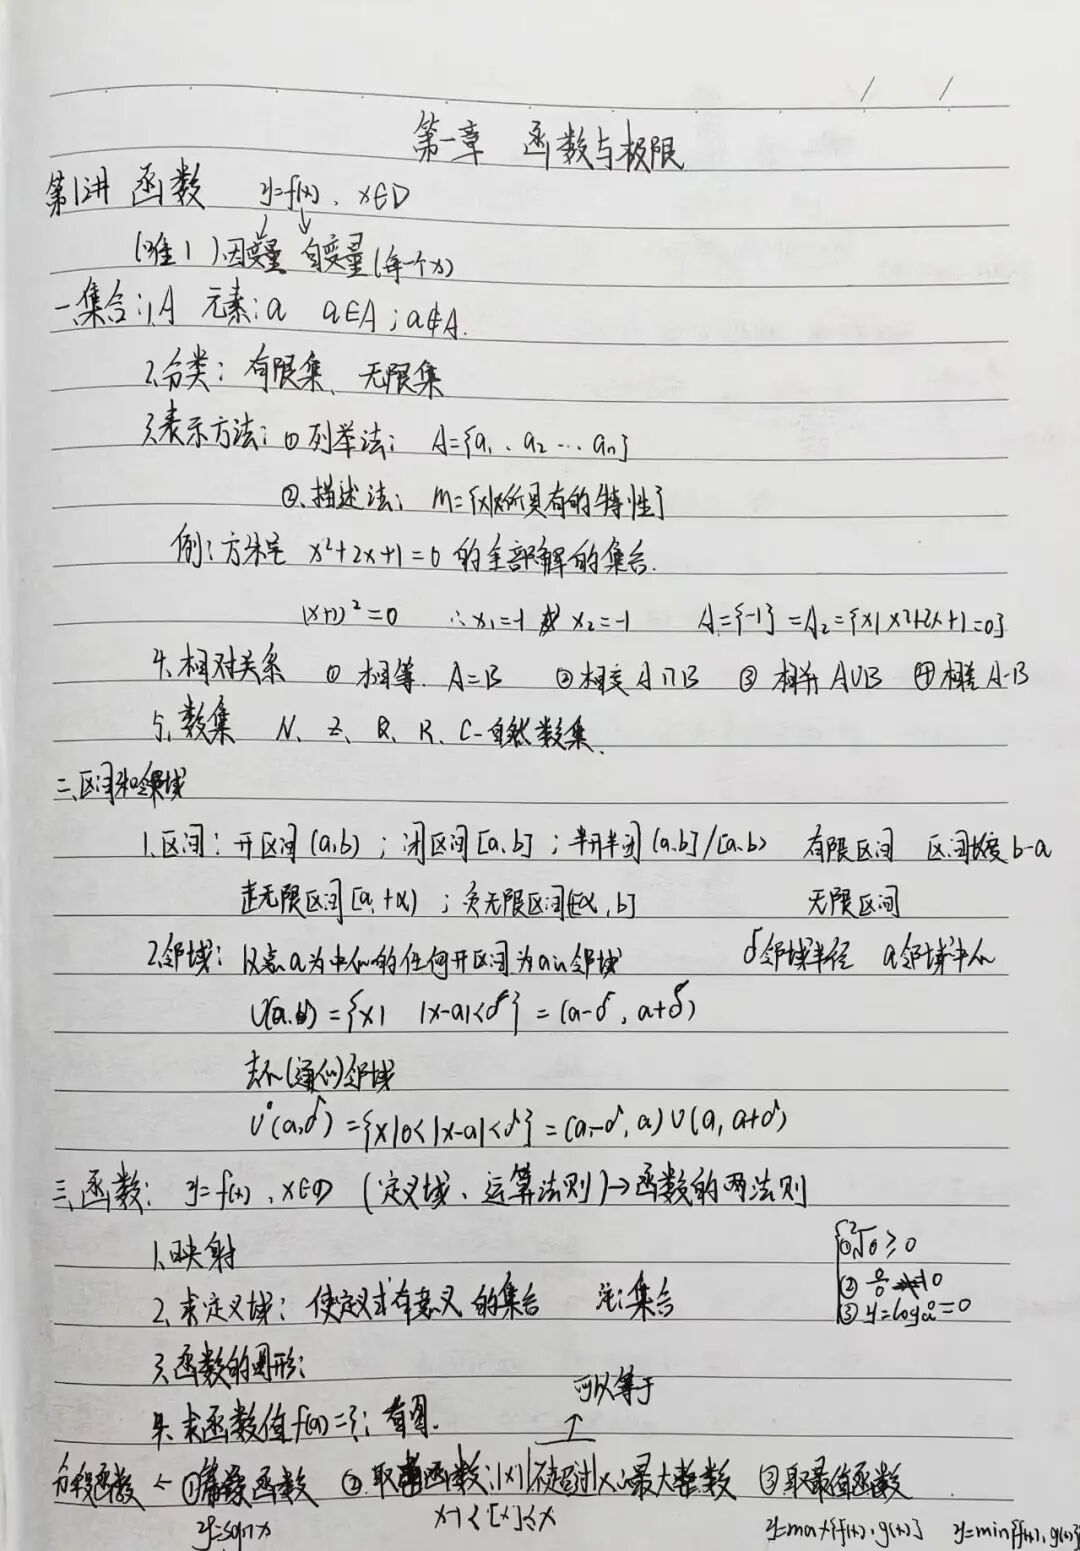 第一章 函数与极限
第1讲 函数 y=f(x)、x∈D
(唯1)因变量 自变量(每一个x)
一.集合:1.A 元素:a a∈A;a∉A.
2.分类:有限集、无限集
3.表示方法:①列举法: A={a₁、a₂…aₙ}
②.描述法: M={x|x所具有的特性}
例:方程 x²+2x+1=0 的全部解的集合.
(x+1)²=0 ∴x₁=-1 或 x₂=-1 A={-1}=A₂={x|x²+2x+1=0}
4.相对关系 ①相等. A=B ②相交A∩B ③相并A∪B ④相差A-B
5.数集 N、Z、Q、R、C-自然数集、
二.区间和邻域
1.区间:开区间(a,b);闭区间[a,b];半开半闭(a,b]/[a,b) 有限区间 区间长度b-a
正无限区间[a,+∞);负无限区间(-∞,b] 无限区间
2.邻域:以点a为中心的任何开区间为a的邻域 δ邻域半径 a邻域中心
U(a,δ)={x| |x-a|<δ}=(a-δ,a+δ)
去心(通心)邻域
U°(a,δ)={x|0<|x-a|<δ}=(a-δ,a)∪(a,a+δ)
三.函数:y=f(x)、x∈D (定义域、运算法则)→函数的两法则
1.映射
①²√0≥0
2.求定义域:使定义式有意义的集合 注:集合
②
③y=log
=0
3.函数的图形:
可以等于
4.求函数值f(a)=?;看图.
分段函数 ← ① 函数 ②.取 函数:|x|不超过x的最大整数 ③取最值函数
y=sgnx x-1<[x]≤x y=max{f(x),g(x)} y=min{f(x),g(x)}